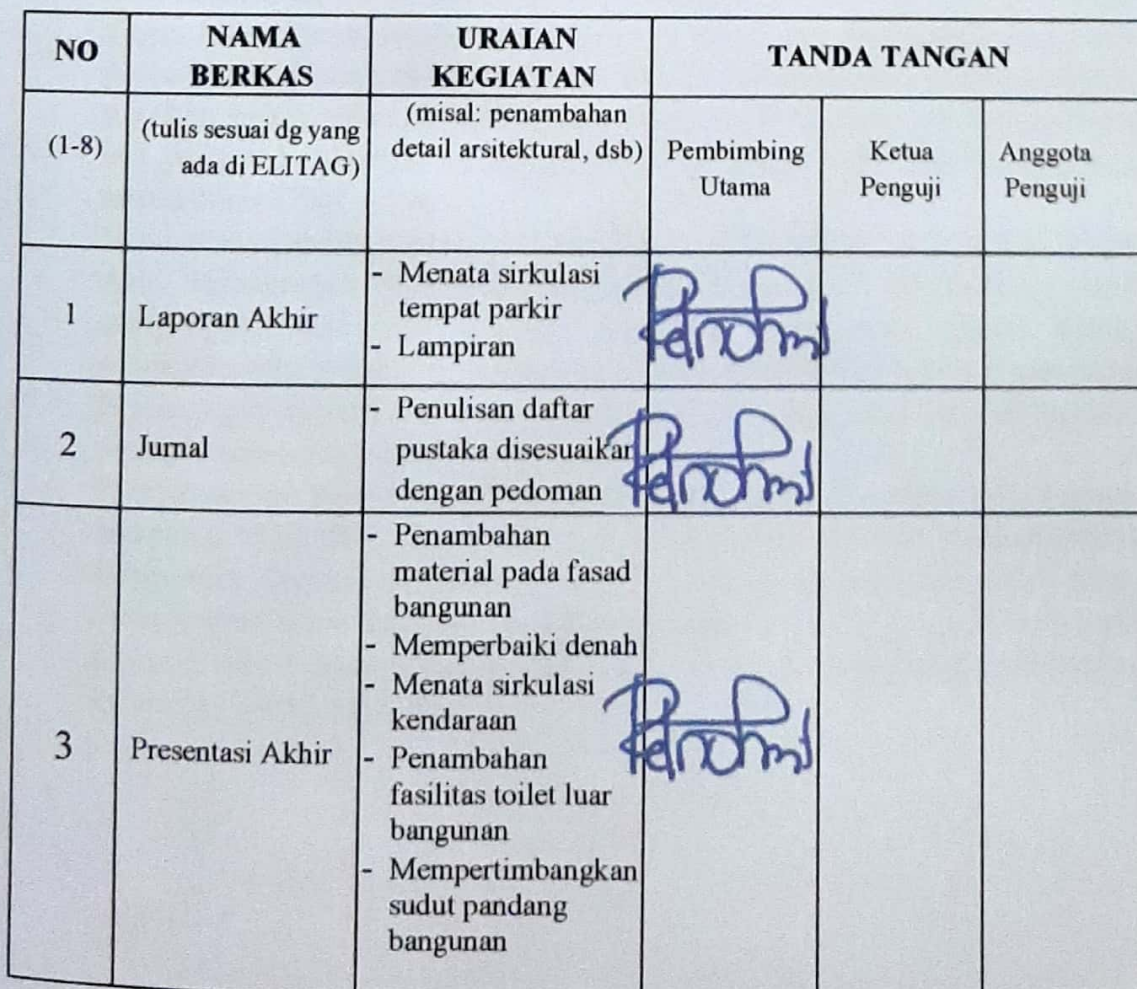 NO
NAMA BERKAS
URAIAN KEGIATAN
TANDA TANGAN
(1-8)
(tulis sesuai dg yang
ada di ELITAG)
(misal: penambahan
detail arsitektural, dsb)
Pembimbing
Utama
Ketua
Penguji
Anggota
Penguji
1
Laporan Akhir
- Menata sirkulasi
tempat parkir
- Lampiran
2
Jurnal
- Penulisan daftar
pustaka disesuaikan
dengan pedoman
3
Presentasi Akhir
- Penambahan
material pada fasad
bangunan
- Memperbaiki denah
- Menata sirkulasi
kendaraan
- Penambahan
fasilitas toilet luar
bangunan
- Mempertimbangkan
sudut pandang
bangunan